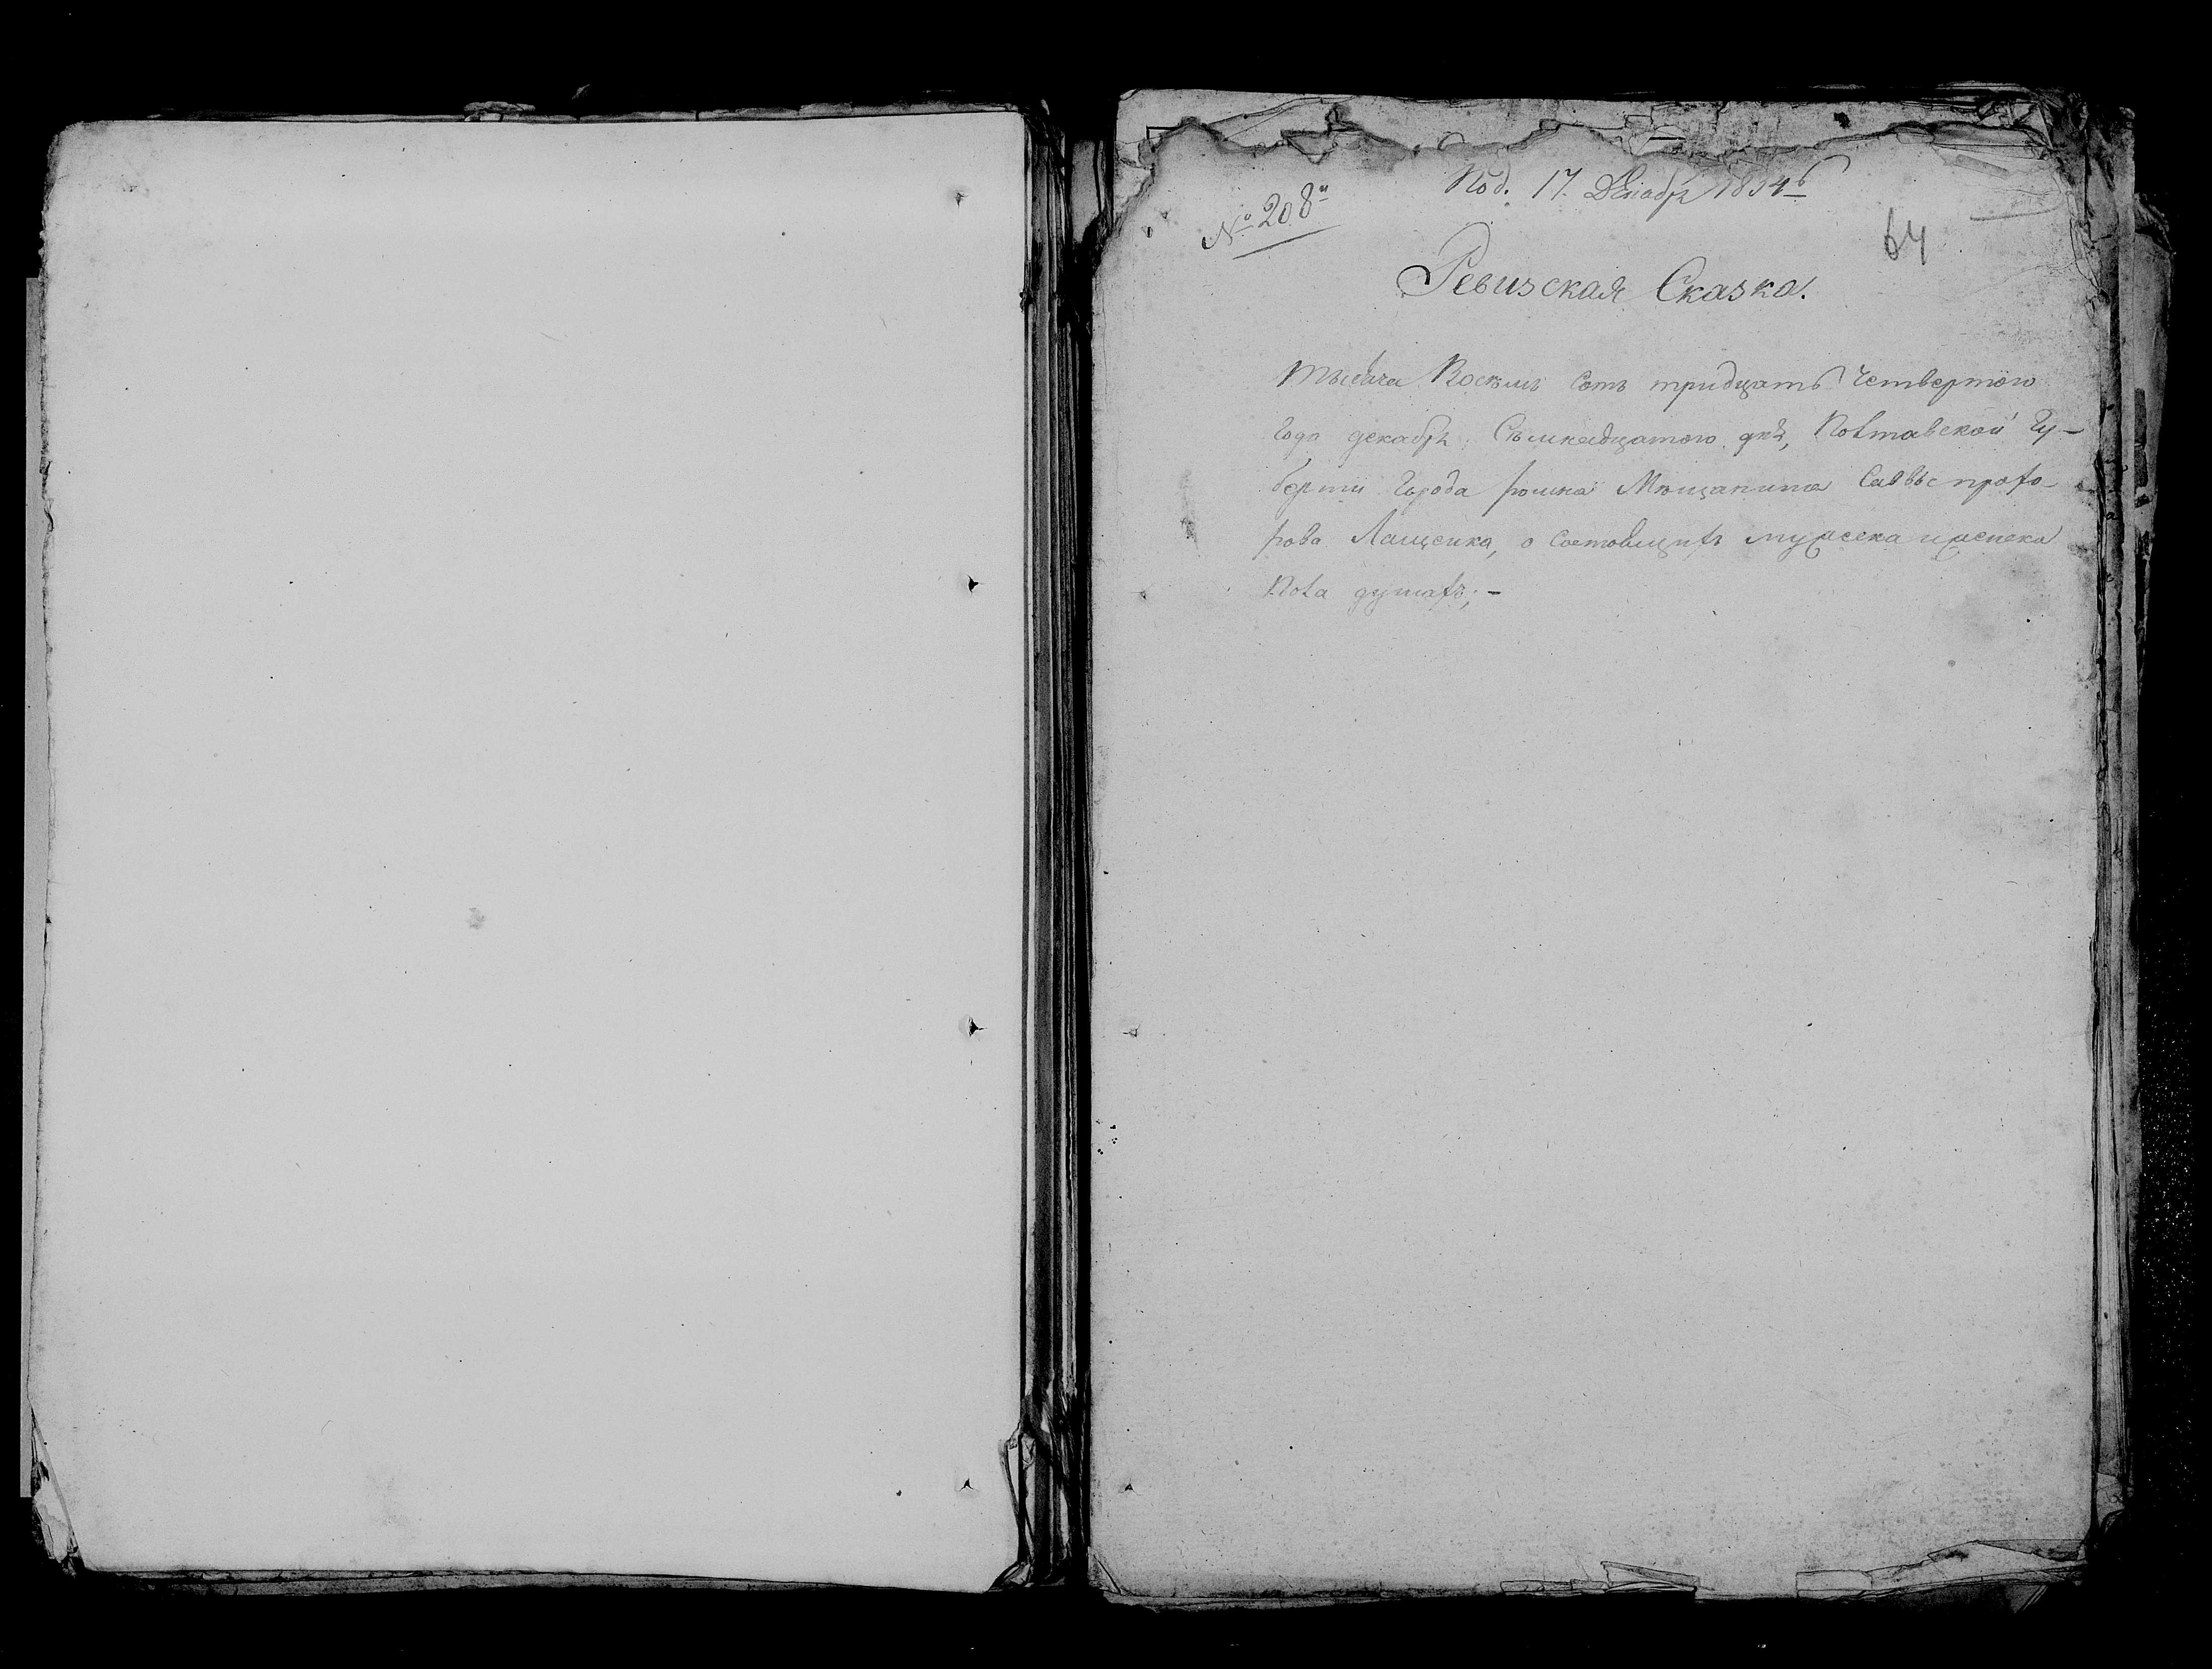 Под. 17. Декабря 1834
№ 208
64
Ревизская Сказка.
тысеча Восемь сотъ тридцать Четвертого
Года декабря Съмнадцатого дня, Полтавской Гу-
берти Города ромна Мещанина Саввы прохо-
рова Лащенка, о Состоящихъ мужеска и женска
Пола душахъ; -